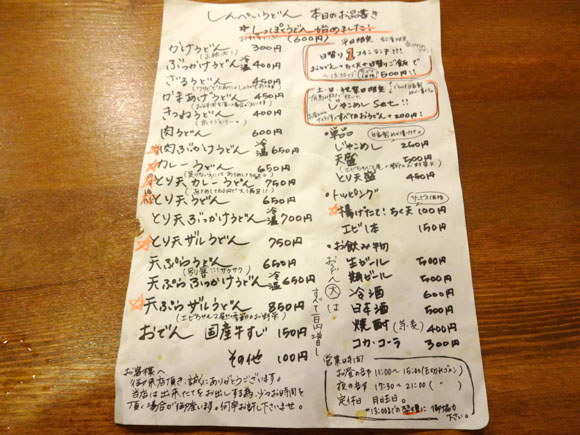 しんぺいうどん 本日のお品書き
★しっぽくうどん始めました
(600円)
かけうどん 300円
ぶっかけうどん 冷 温 400円
ざるうどん 450円
かまあげうどん 450円
きつねうどん 400円
肉うどん 600円
肉ぶっかけうどん 冷 温 650円
カレーうどん 650円
とり天カレーうどん 750円
とり天うどん 650円
とり天ぶっかけうどん 冷 温 700円
とり天ザルうどん 750円
天ぷらうどん 650円
天ぷらぶっかけうどん 冷 温 650円
天ぷらザルうどん 850円
おでん 国産牛すじ 150円
その他 100円
おうどん(大)は すべて百円増し
お客様へ
御来店頂き、誠にありがとうございます。
当店は出来たてをお出しする為、少々お時間を
頂く場合が御座います。何卒お許し下さいませ。
平日限定
日替り ワンコインランチ!!!
おうどん+ちく天+日替りご飯で
500円!!
土・日・祝営日限定
じゃこめしSet!!
すべてのおうどん+200円!
・単品
じゃこめし 250円
天盛 500円
とり天盛 450円
・トッピング
揚げたて!ちく天 100円
エビ1本 150円
・お飲み物
生ビール 500円
瓶ビール 500円
冷酒 600円
日本酒 500円
焼酎 400円
コカ・コーラ 300円
営業時間
お昼の部 11:00〜15:00
夜の部 17:30〜21:00
定休日 月曜日。
*13:00までの禁煙に御協力
下さい。